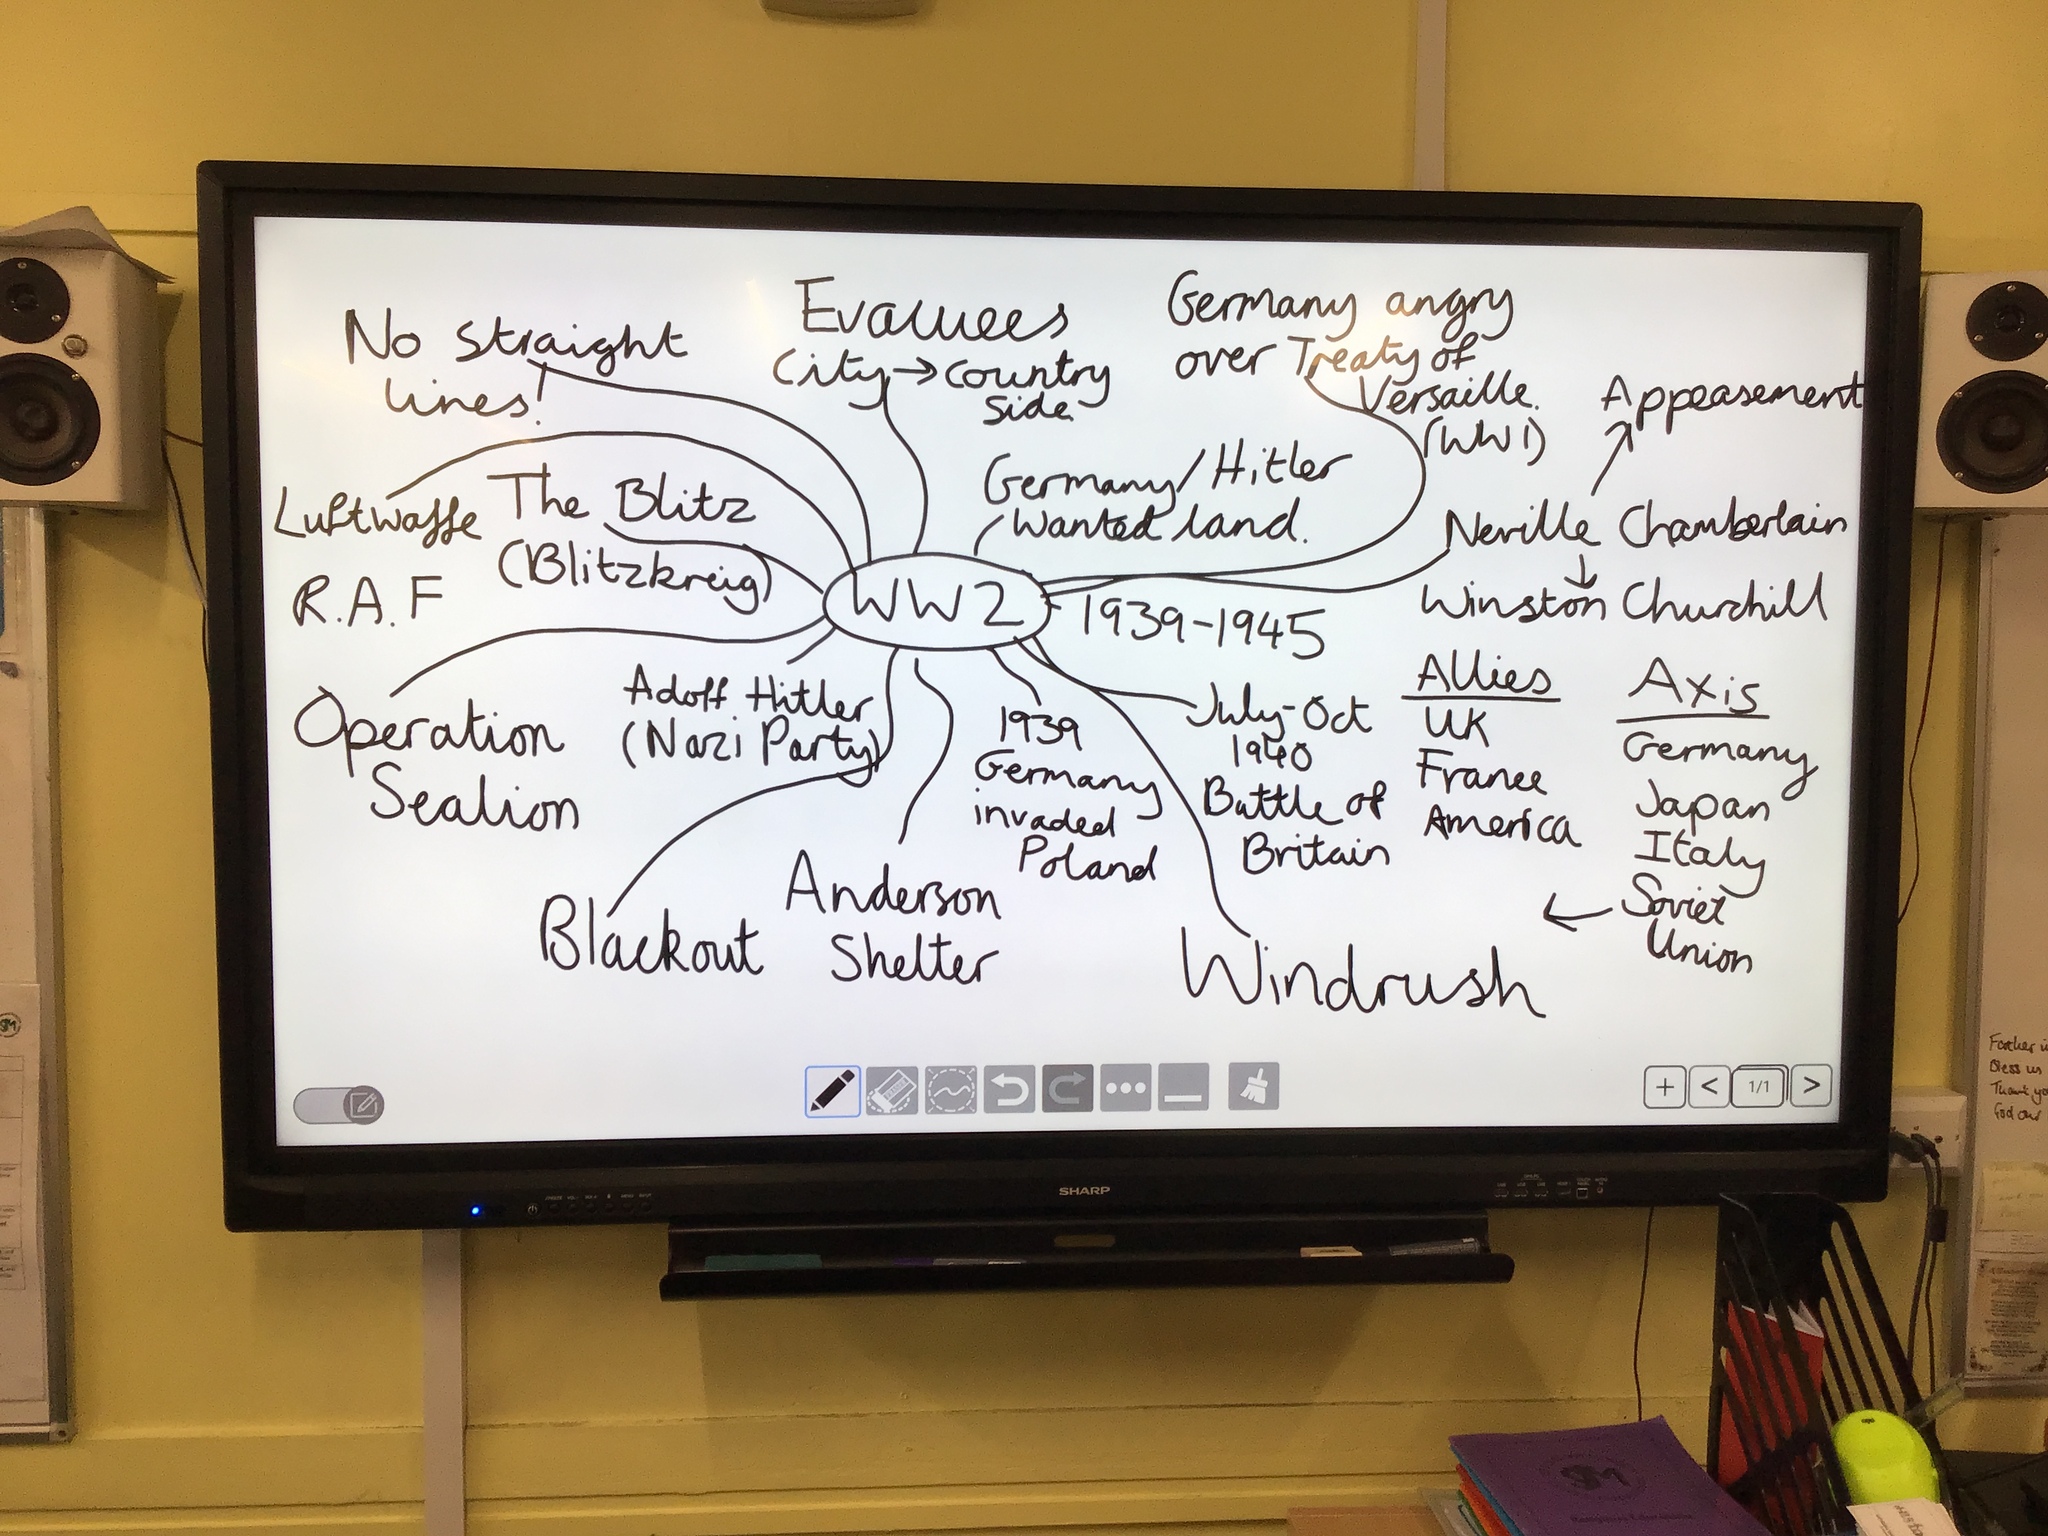 No straight
lines!
Evacuees
City → country
side.
Germany angry
over Treaty of
Versaille.
(WW1)
Appeasement
Luftwaffe
The Blitz
(Blitzkreig)
Germany/Hitler
wanted land.
Neville Chamberlain
↓
Winston Churchill
R.A.F
WW2
1939-1945
Operation
Sealion
Adolf Hitler
(Nazi Party)
1939
Germany
invaded
Poland
July-Oct
1940
Battle of
Britain
Allies
UK
France
America
Axis
Germany
Japan
Italy
← Soviet
Union
Blackout
Anderson
Shelter
Windrush
1/1
SHARP
Bless us
Thank yo
God our
SM